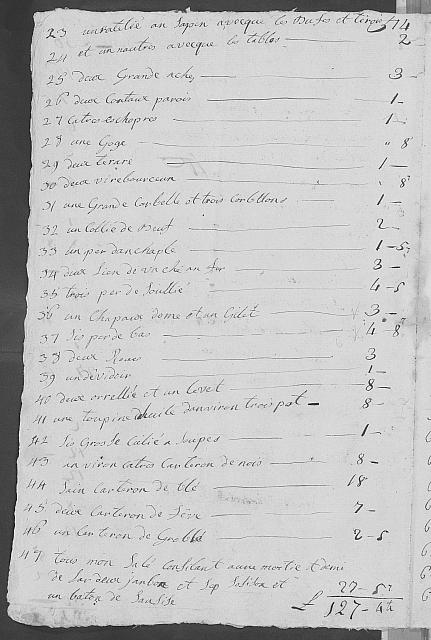 23 un ratelié an Sapin avocque les Buses et tirois 74
24 et un nautres avocque les tables 2
25 deux Grande ache 3
26 deux Contaux parois 1
27 catres Eschopres 1
28 une Goge " 8
29 deux terare 1
30 deux virebourceun " 8
31 une Grande Corbelle et trois Corbellons 1
32 un Collié de Beuf 2
33 un per danchaple 1-5
34 deux Lien de vaché an fer 3
35 trois per de Soullié 4-5
36 un Chapaux dome et un Gilét 3
37 Sis per de bas 4-8
38 deux Roues 3
39 un dévidoir 1
40 deux orrellié et un Covet 8
41 une toupine deuile danviron trois pot 8
42 Sis Grosse Culié a Soupes 1
43 anviron catres Carteron de nois 8
44 Sain Carteron de blé 18
45 deux Carteron de féve 7
46 un Carteron de Grobbé 2-5
47 tous mon Salé Consistant a une mortie &
de Lar deux janbon et Sep Sosison et
un baton de Sausise
27-5
£ 127-4